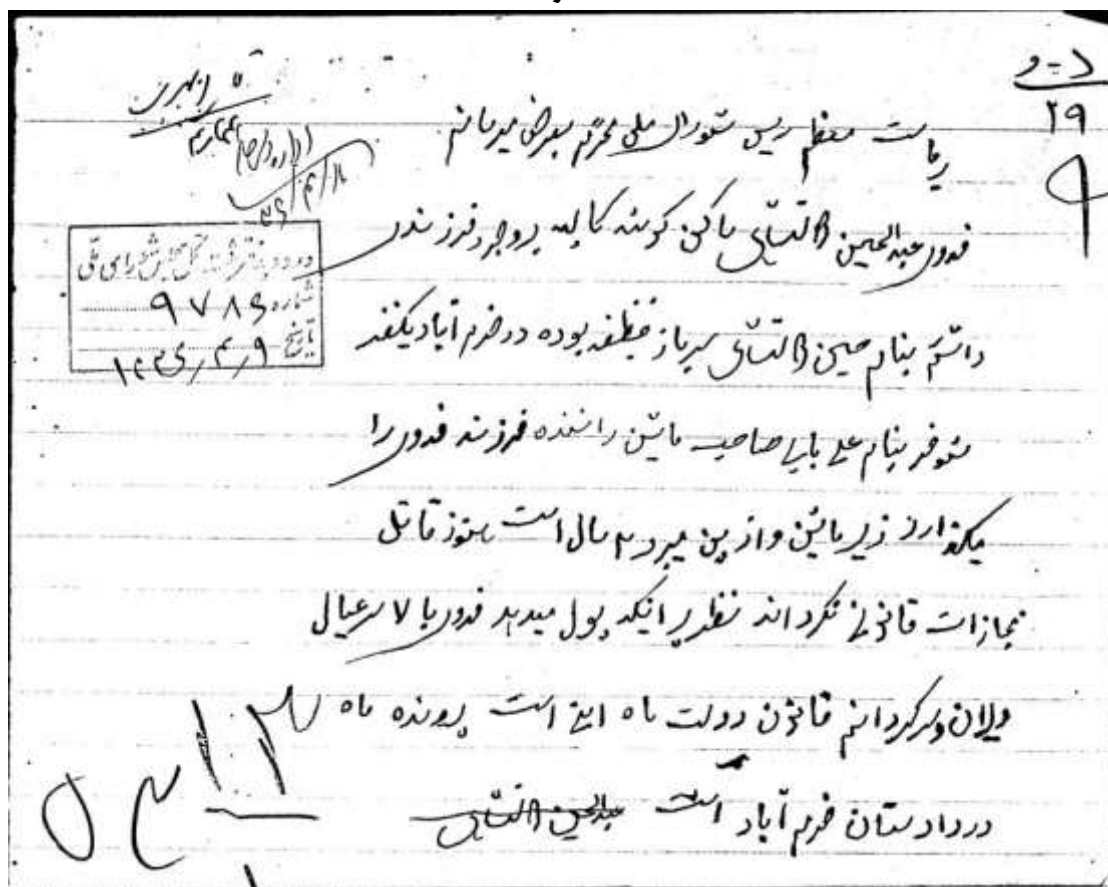 د-و
۲۹
۹
ریاست معظم ریس شورای ملی محترم بعرض میرسانم
فدوی عبدالحسین ساکن کوشه کالیه بروجرد فرزندی
داشتم بنام حسین سرباز وظیفه بوده در خرم آباد یکنفر
شوفر بنام علی بابا صاحب ماشین راننده فرزند فدوی را
میگذارد زیر ماشین و از بین میبرد ۲ سال است هنوز قاتل
مجازات قانونی نکرد اند نظر بر اینکه پول میدهد فدوی با ۷ سر عیال
ویلان و سرگردانم قانون دولت ماه این است پرونده ماه
در دادستان خرم آباد است عبدالحسین
ورود بدفتر مجلس شورای ملی
شماره ۹۷۸۶
تاریخ ۱۳۳۶٫۴٫۹